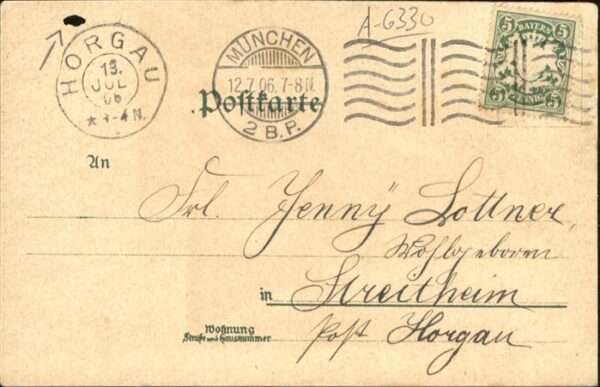 A-6330
HORGAU
13.
JUL
06
MÜNCHEN
12.7.06.7-8N.
2 B.P.
5 BAYERN 5
5 5
Postkarte
An
Frl. Jenny Lottner,
Wohlgeboren
in Streitheim
Wohnung
Straße und Hausnummer
Post Horgau